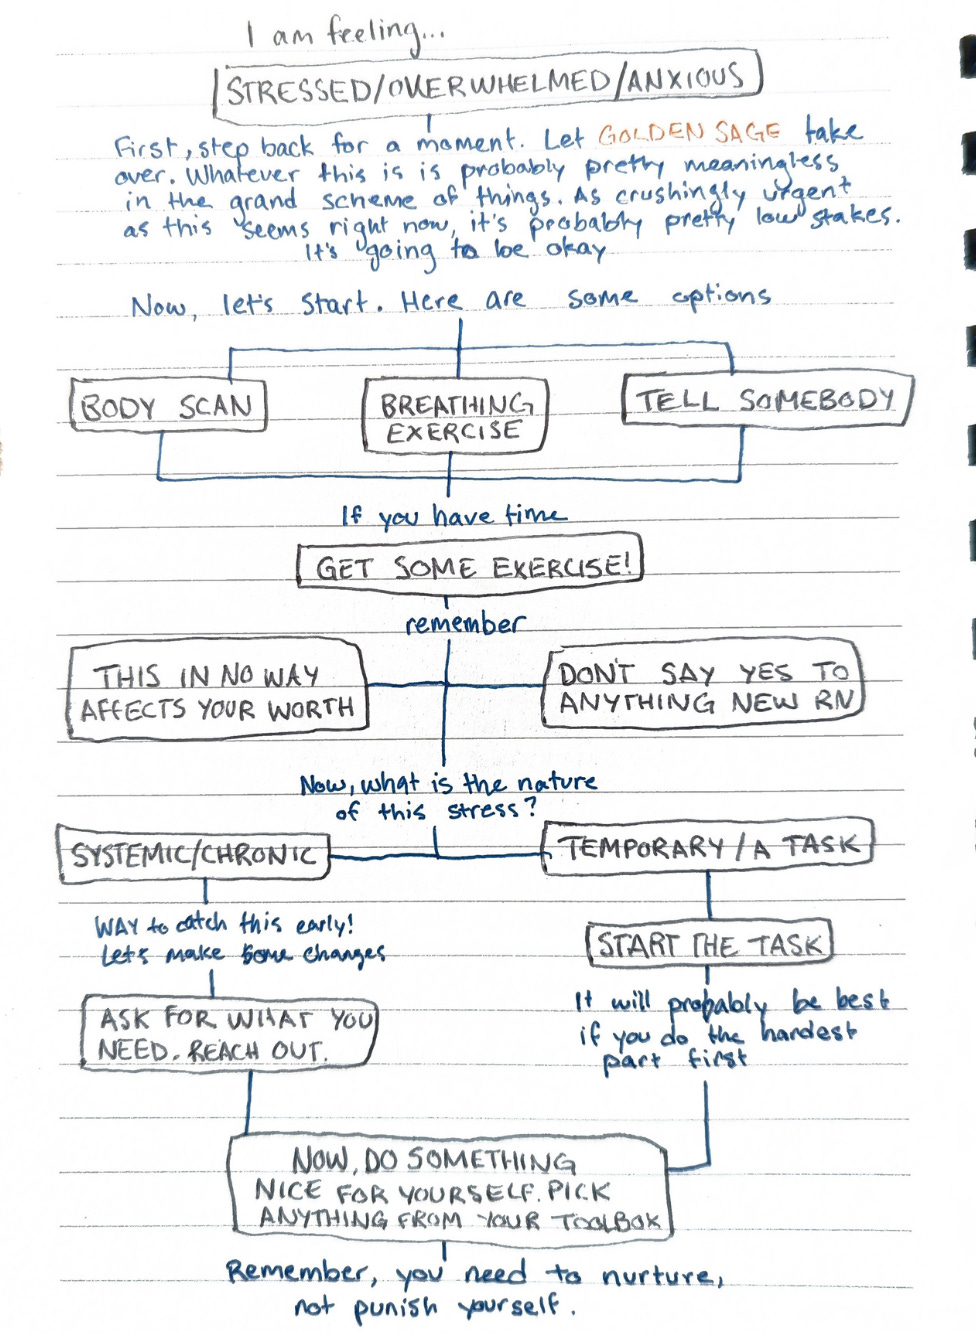 I am feeling...
STRESSED/OVERWHELMED/ANXIOUS
First, step back for a moment. Let GOLDEN SAGE take
over. Whatever this is is probably pretty meaningless
in the grand scheme of things. As crushingly urgent
as this seems right now, it's probably pretty low stakes.
It's going to be okay
Now, let's start. Here are some options
BODY SCAN
BREATHING
EXERCISE
TELL SOMEBODY
If you have time
GET SOME EXERCISE!
remember
THIS IN NO WAY
AFFECTS YOUR WORTH
DON'T SAY YES TO
ANYTHING NEW RN
Now, what is the nature
of this stress?
SYSTEMIC/CHRONIC
TEMPORARY/A TASK
WAY to catch this early!
Let's make some changes
START THE TASK
ASK FOR WHAT YOU
NEED. REACH OUT.
It will probably be best
if you do the hardest
part first
NOW, DO SOMETHING
NICE FOR YOURSELF. PICK
ANYTHING FROM YOUR TOOLBOX
Remember, you need to nurture,
not punish yourself.